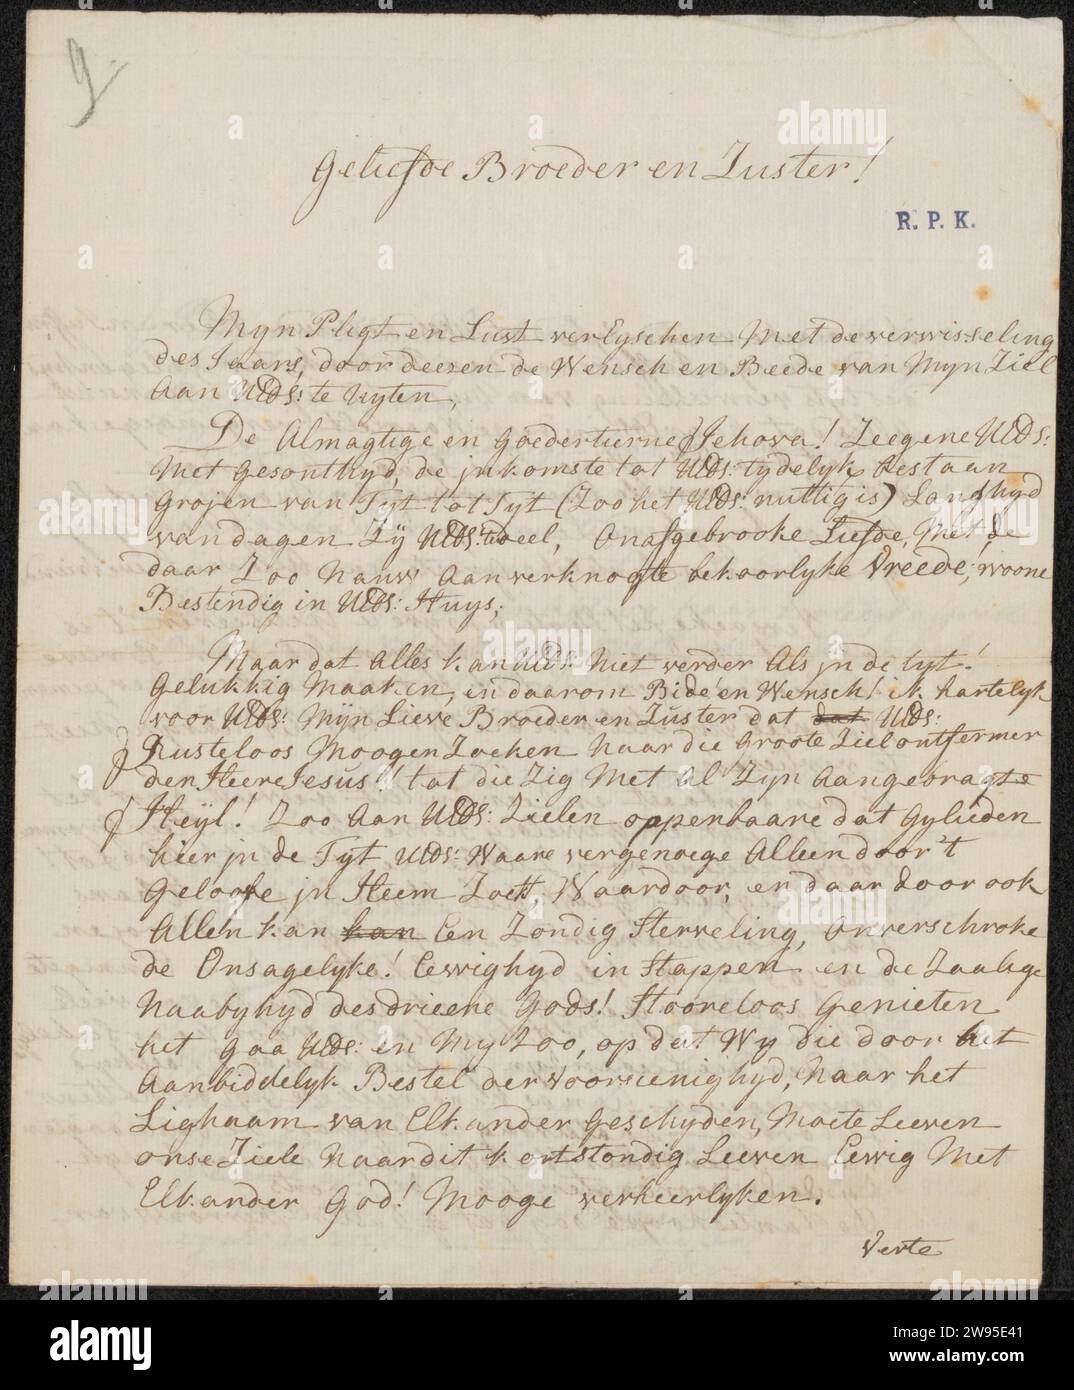 9.
Geliefde Broeder en Zuster!
R. P. K.
Myn Pligt en Lust verEyschen Met de verwisseling
des Jaars, door deezen de Wensch en Beede van Myn Ziel
Aan UEds: te Uyten,
De Almagtige en Goedertierne Jehova! Zeegene UEds:
Met Gesonthyd, de jnkomste tot UEds: tydelyk bestaan
Grojen van Tyt tot Tyt (Zoo het UEds: nuttig is) Langhyd
van dagen Zÿ UEds: deel, Onafgebrooke Liefde, Met de
daar Zoo Nauw Aan verknogte bekoorlyke Vreede, woone
Bestendig in UEds: Huys;
Maar dat Alles kan UEds: Niet verder Als jn de tyt!
Gelukkig Maaken, en daarom Bidé en Wensch! ik hartelyk
voor UEds: Mÿn Lieve Broeder en Zuster dat dat UEds:
Rusteloos Moogen Zoeken Naar die Groote Zielontfermer
den Heere Jesus!! tot die Zig Met Al Zyn Aangebragte
Heÿl! Zoo Aan UEds: Zielen oppenbaare dat Gylieden
hier jn de Tyt UEds: Waare vergenoege Alleen door 't
Geloofe jn Heem Zoekt, Waardoor, en daar door ook
Allen kan kan Een Zondig Sterveling, Onverschroke
de Onsagelyke! Eewighyd in Stappen en de Zaalige
Naabyhyd des drieene Gods! Stooreloos Genieten
het gaa UEds: en My Zoo, op dat Wy die door het
Aanbiddelyk Bestel der Voorzienighyd, Naar het
Lighaam van Elkander Geschyden, Moete Leeven
onse Ziele Naar dit kortstondig Leeven Eewig Met
Elkander God! Mooge verheerlyken.
Verte
alamy
Image ID: 2W95E41
www.alamy.com